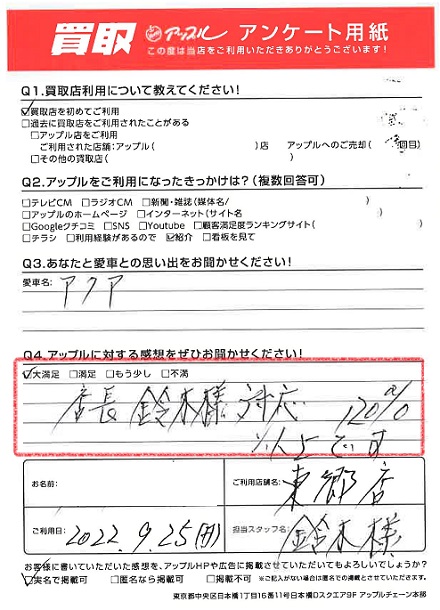 買取 アップル アンケート用紙
この度は当店をご利用いただきありがとうございます!
Q1.買取店利用について教えてください!
☑買取店を初めてご利用
□過去に買取店をご利用されたことがある
□アップル店をご利用
ご利用された店舗:アップル( )店 アップルへのご売却( 回目)
□その他の買取店( )
Q2.アップルをご利用になったきっかけは?(複数回答可)
□テレビCM □ラジオCM □新聞・雑誌(媒体名/ )
□アップルのホームページ □インターネット(サイト名 )
□Googleクチコミ □SNS □Youtube □顧客満足度ランキングサイト( )
□チラシ □利用経験があるので ☑紹介 □看板を見て
Q3.あなたと愛車との思い出をお聞かせください!
愛車名: アクア
Q4.アップルに対する感想をぜひお聞かせください!
☑大満足 □満足 □もう少し □不満
店長 鈴木様 対応 120%
以上です
お名前:
ご利用店舗名: 東郷店
ご利用日: 2022.9.25(日)
担当スタッフ名: 鈴木様
お客様に書いていただいた感想を、アップルHPや広告などに掲載させていただいてもよろしいでしょうか?
☑実名で掲載可 □匿名なら掲載可 □掲載不可 ※ご記入がない場合は匿名での掲載とさせていただきます。
東京都中央区日本橋1丁目16番11号日本橋Dスクエア9F アップルチェーン本部